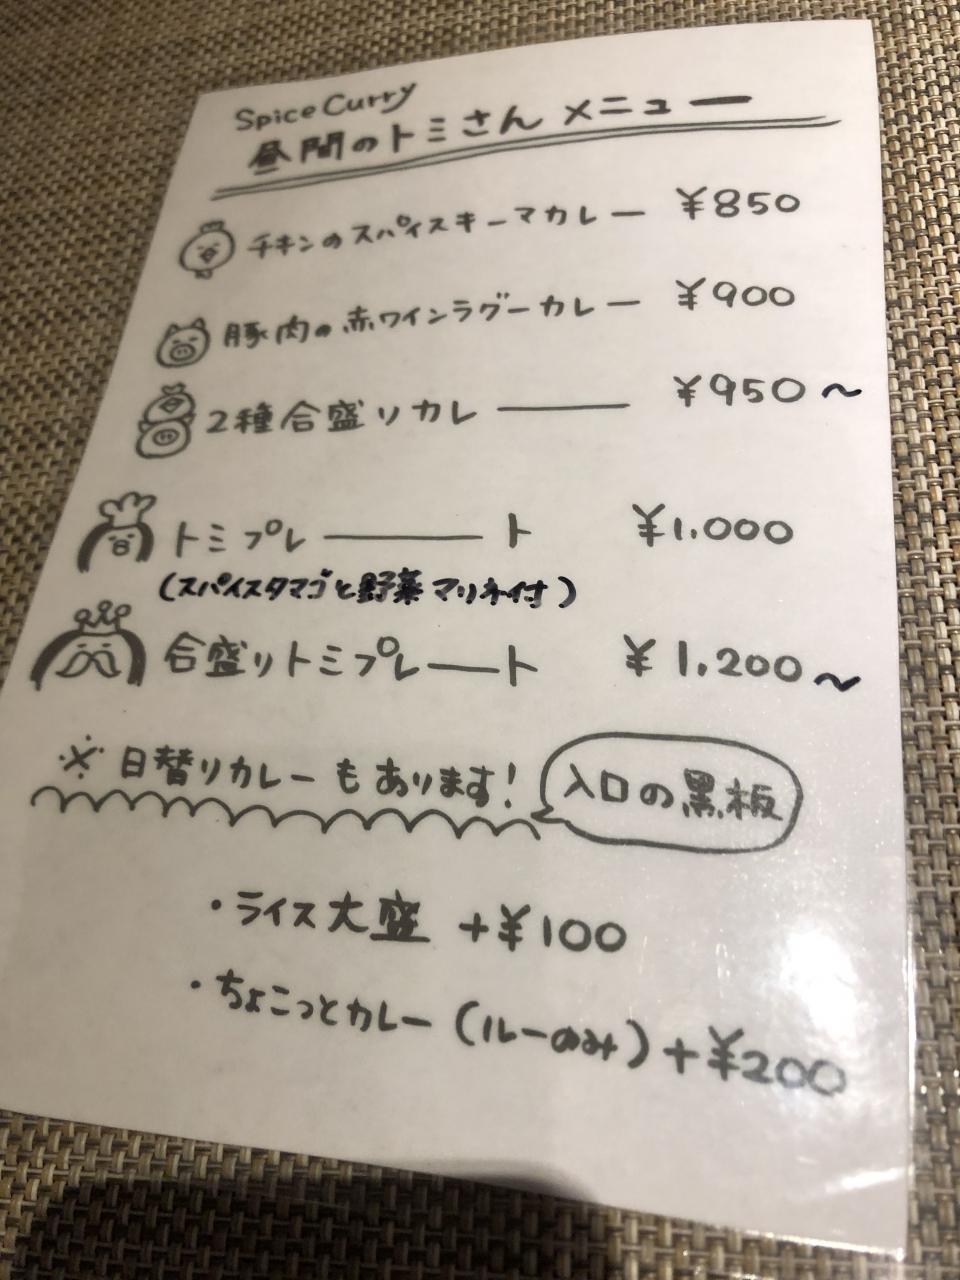 Spice Curry
昼間のトミさん メニュー
チキンのスパイスキーマカレー ¥850
豚肉の赤ワインラグーカレー ¥900
2種合盛りカレー ¥950～
トミプレート ¥1.000
(スパイスタマゴと野菜マリネ付)
合盛りトミプレート ¥1.200～
※日替りカレーもあります! 入口の黒板
・ライス大盛 +¥100
・ちょこっとカレー(ルーのみ)+¥200